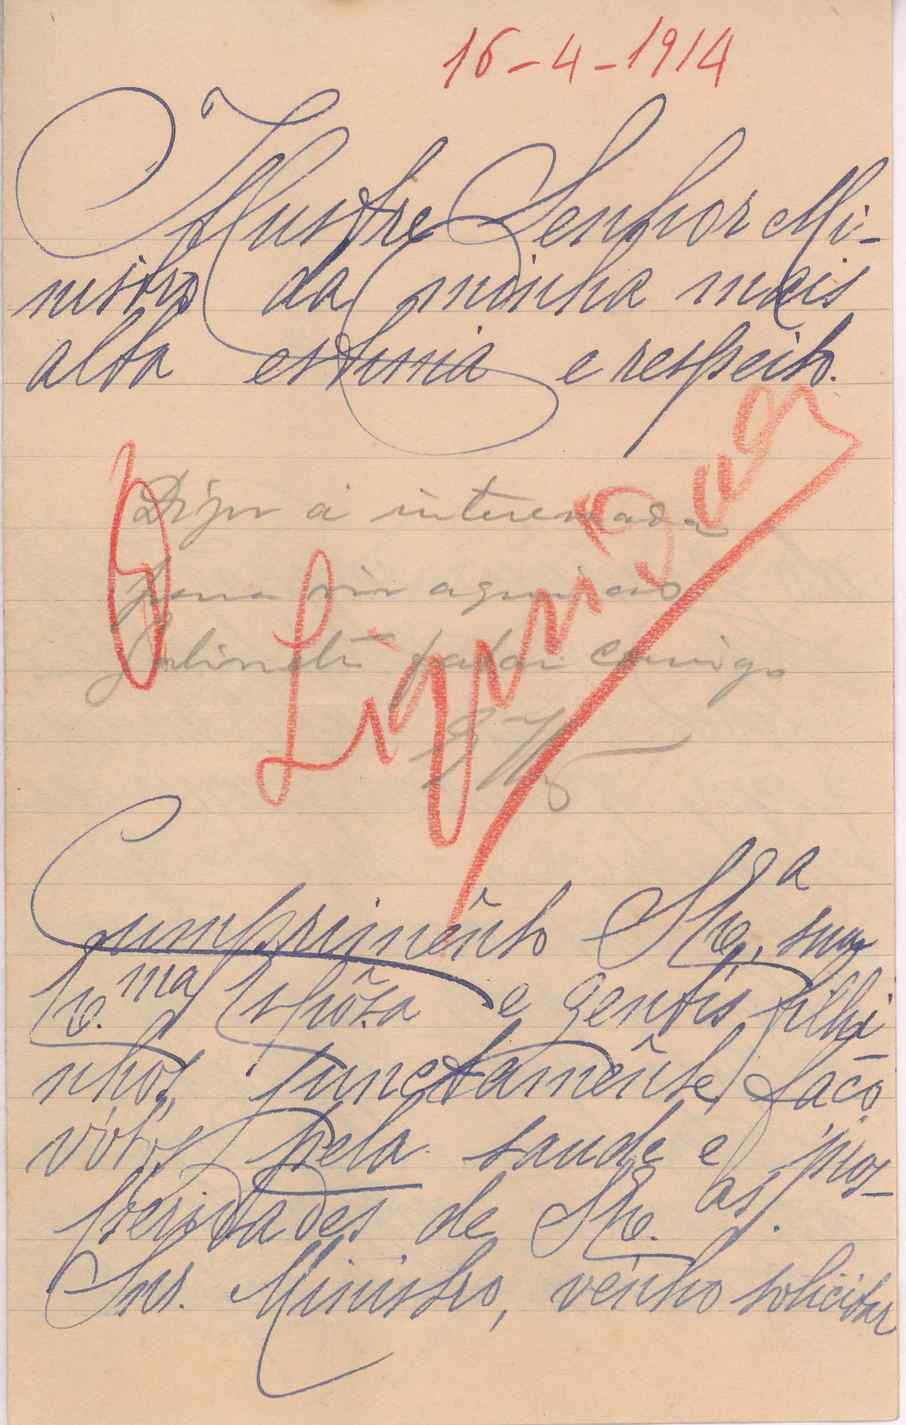 16-4-1914
Illustre Senhor Mi-
nistro da minha mais
alta estima e respeito.
Diga á interessada
para vir aqui ao
Gabinete falar comigo
Liquidado
Cumprimênto S. Ex.ª, sua
Ex.ma Espôsa e gentis filhi
nhos, junctamênte faço
vótos pela saude e pros-
peridades de S. Ex.as.
Snr. Ministro, venho solicitar